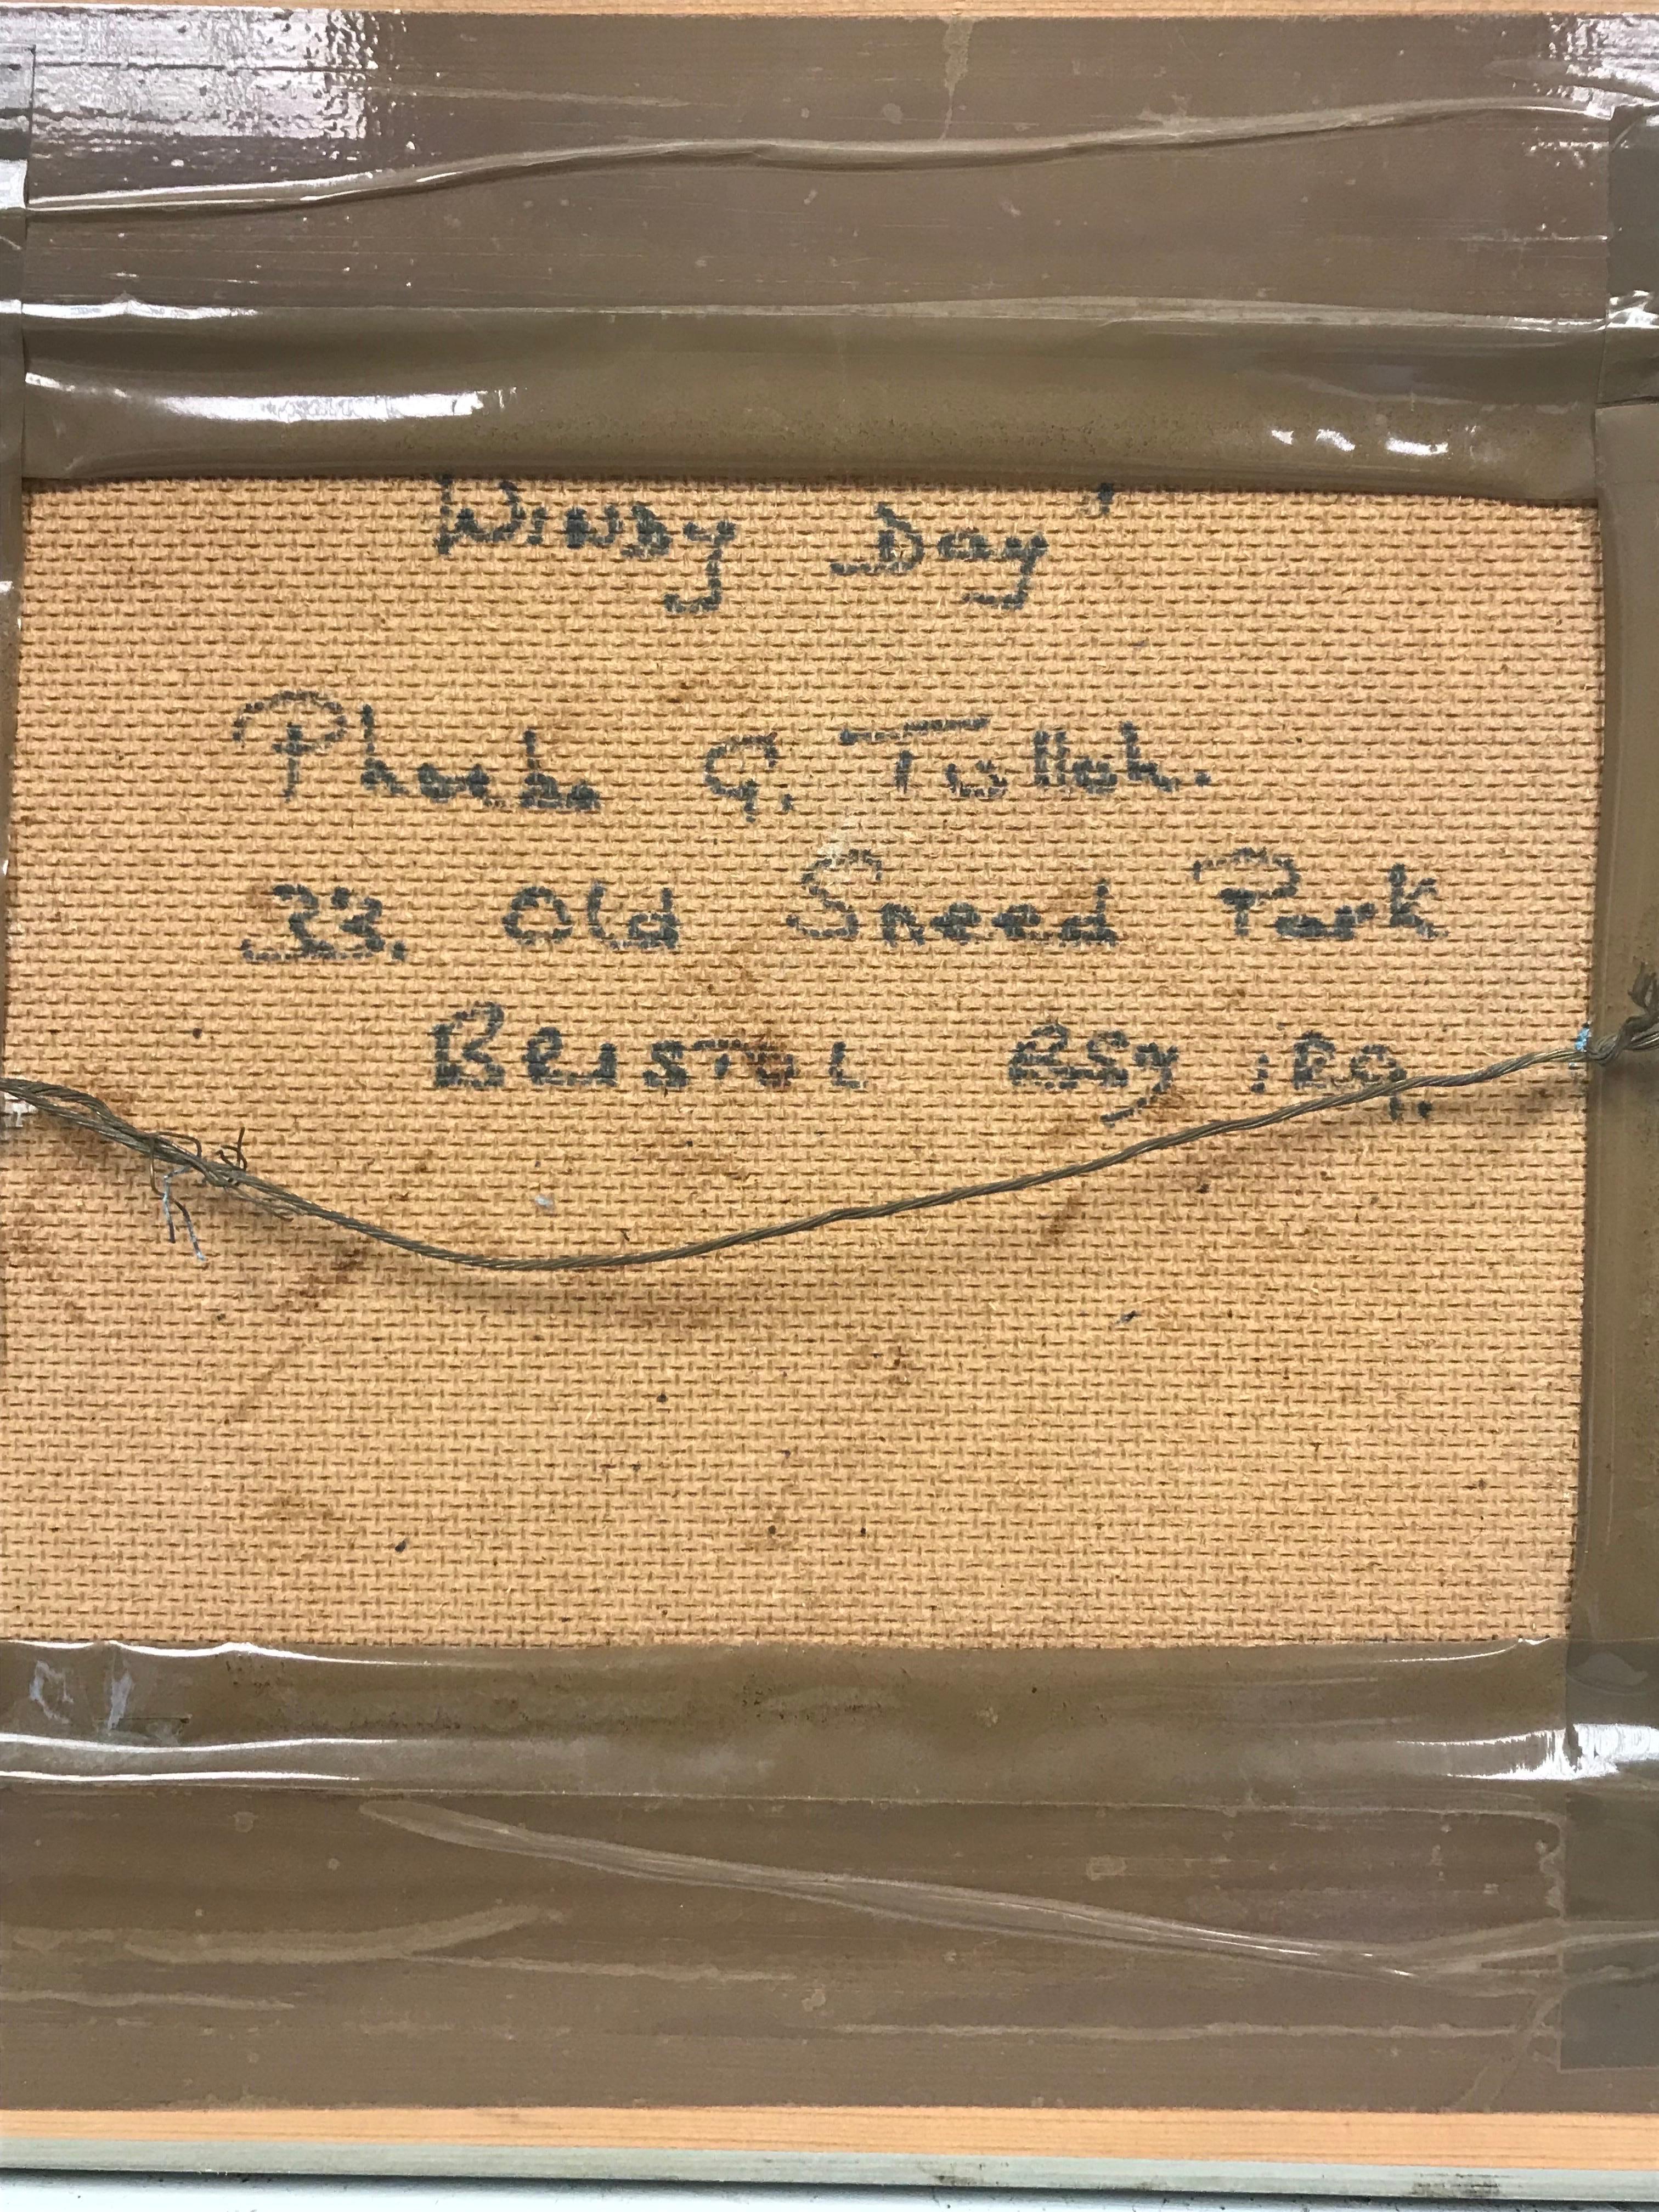 Windy Day"
Phoebe G.
33. Old Sneed Park
BRISTOL BS9 1RG.